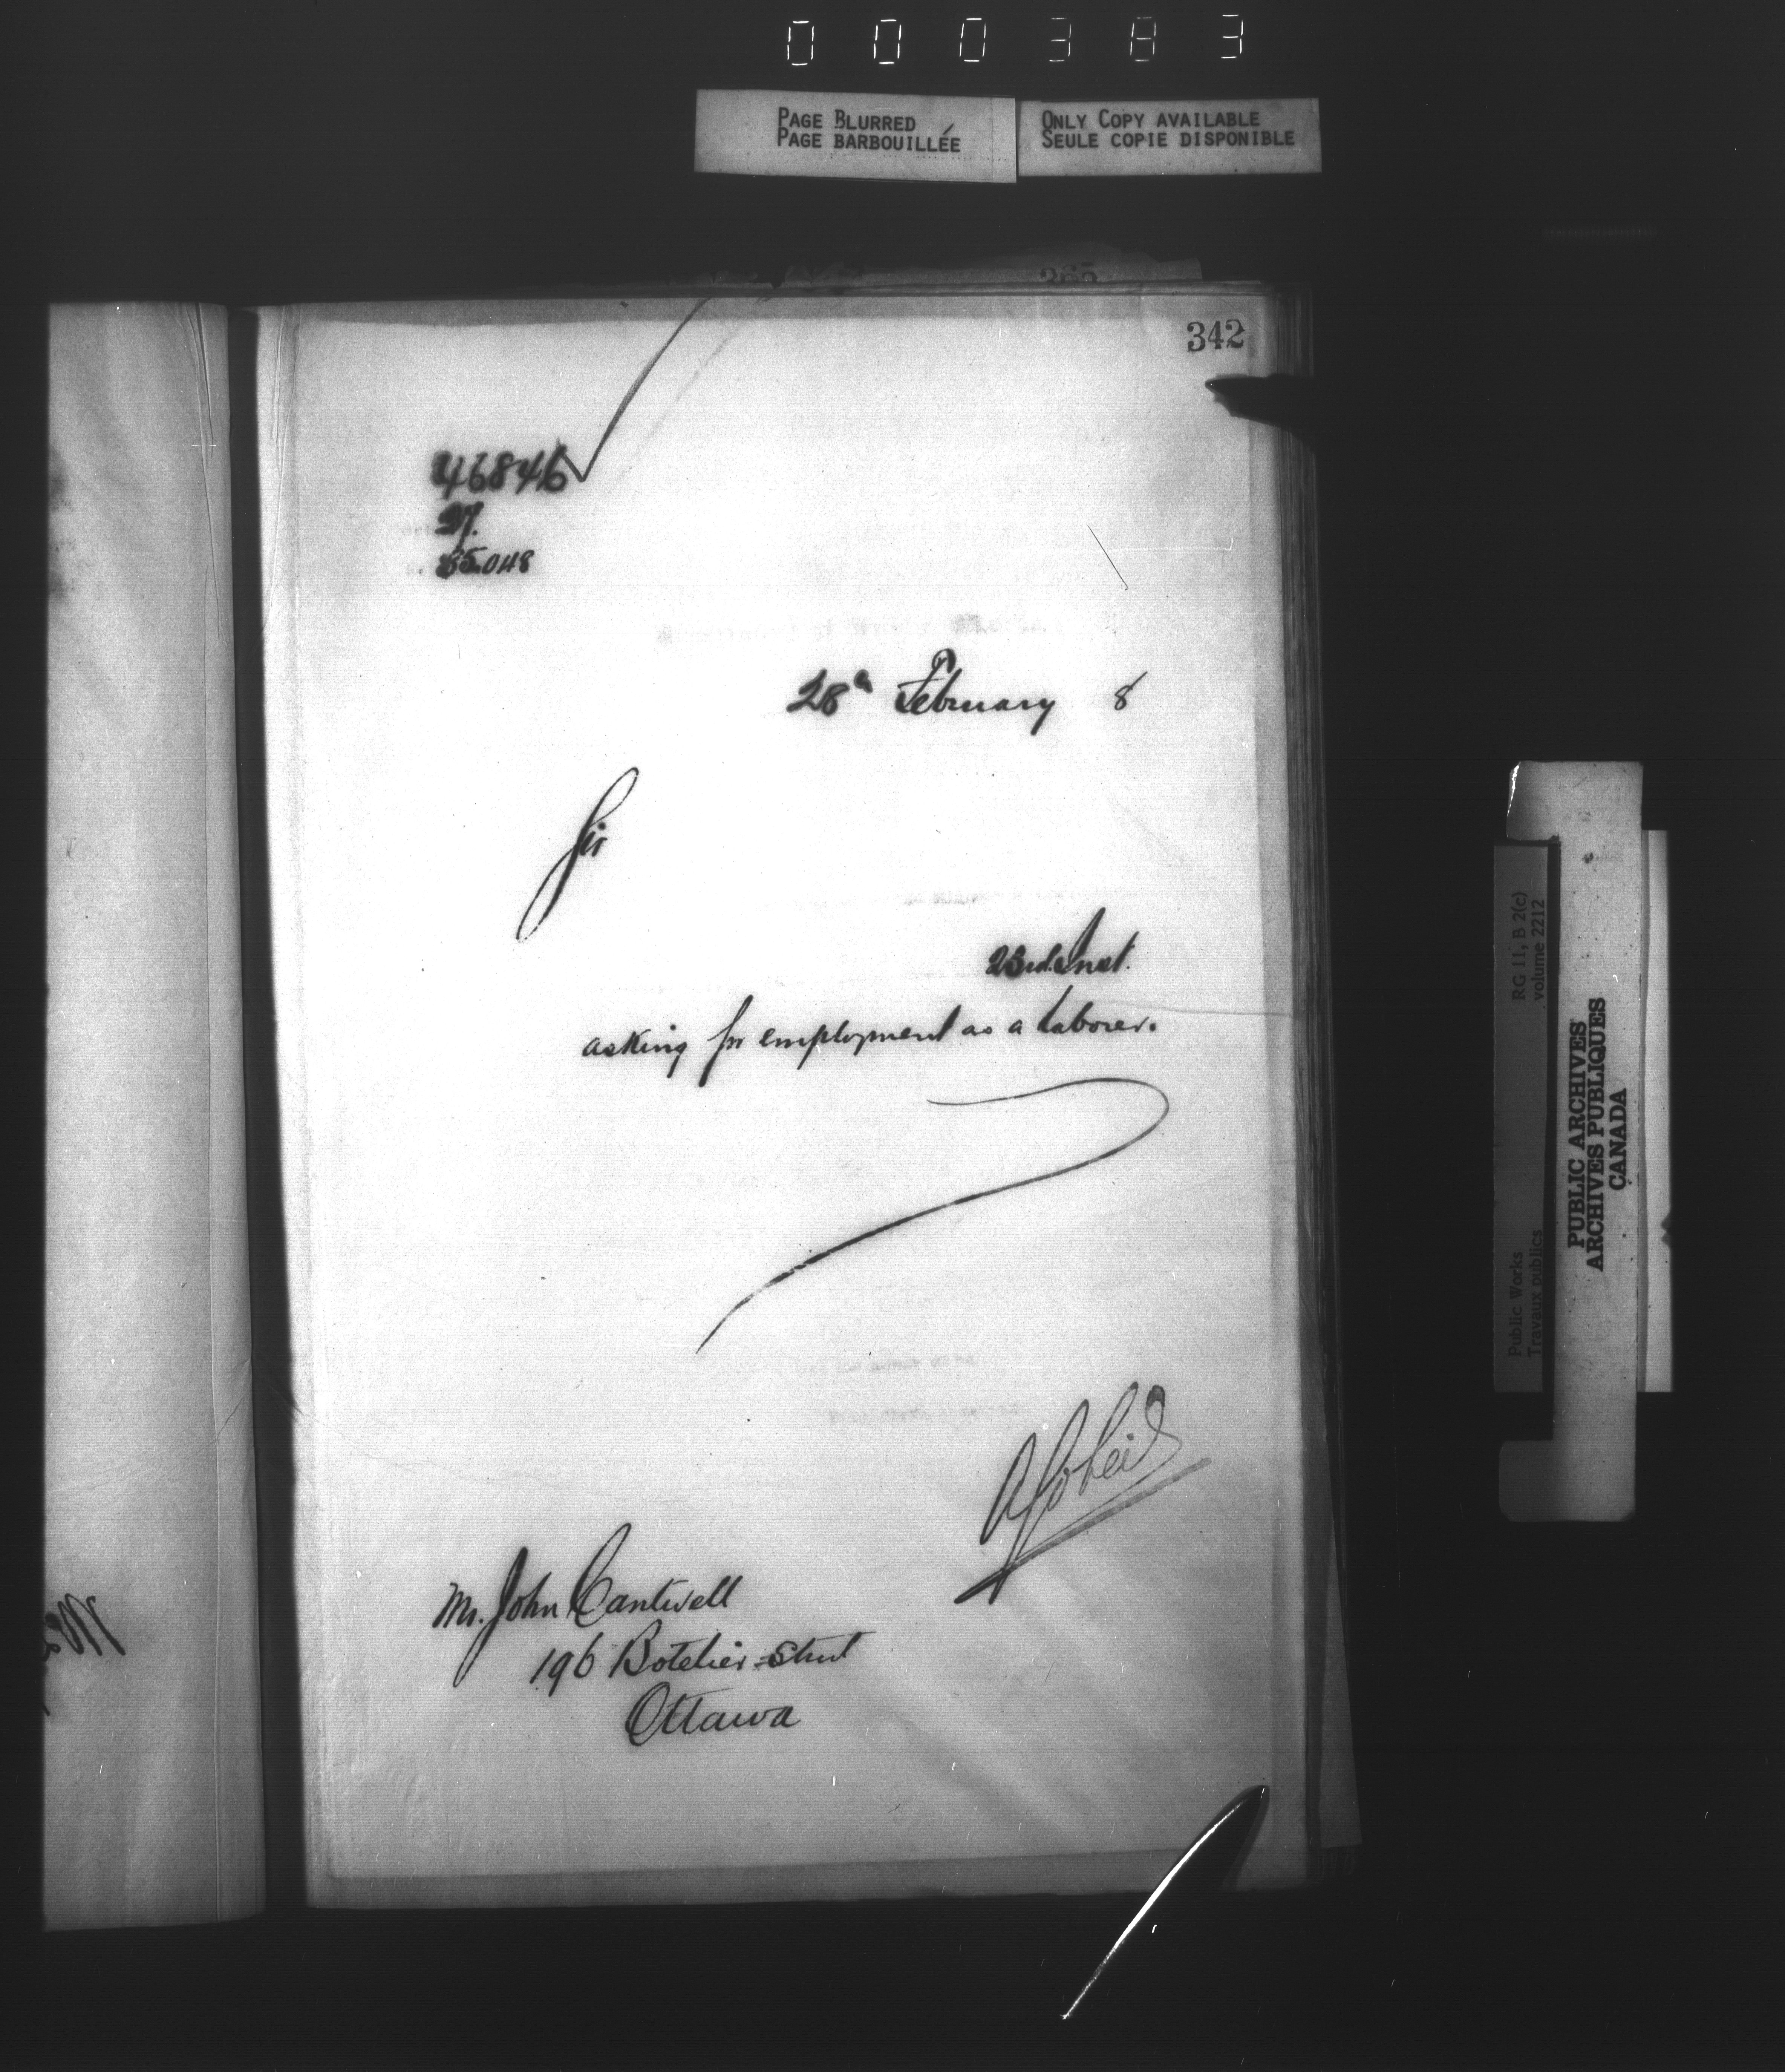 000383
PAGE BLURRED
PAGE BARBOUILLÉE
ONLY COPY AVAILABLE
SEULE COPIE DISPONIBLE
365
342
46846
27.
85048
28th February 8
Sir
23rd. Inst.
asking for employment as a laborer.
A Gobeil
Mr. John Cantwell
196 Botelier Street
Ottawa
RG 11, B 2(c)
volume 2212
Public Works
Travaux publics
PUBLIC ARCHIVES
ARCHIVES PUBLIQUES
CANADA